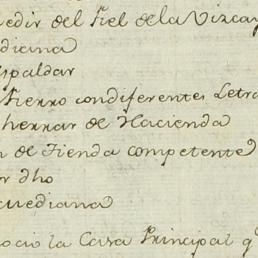 edir del Fiel de la Vizcay
diana
spaldar
Fierro con diferentes Letra
herrar de Hacienda
n de Tienda competente
r dho
cuediana
ocio la Casa Principal q